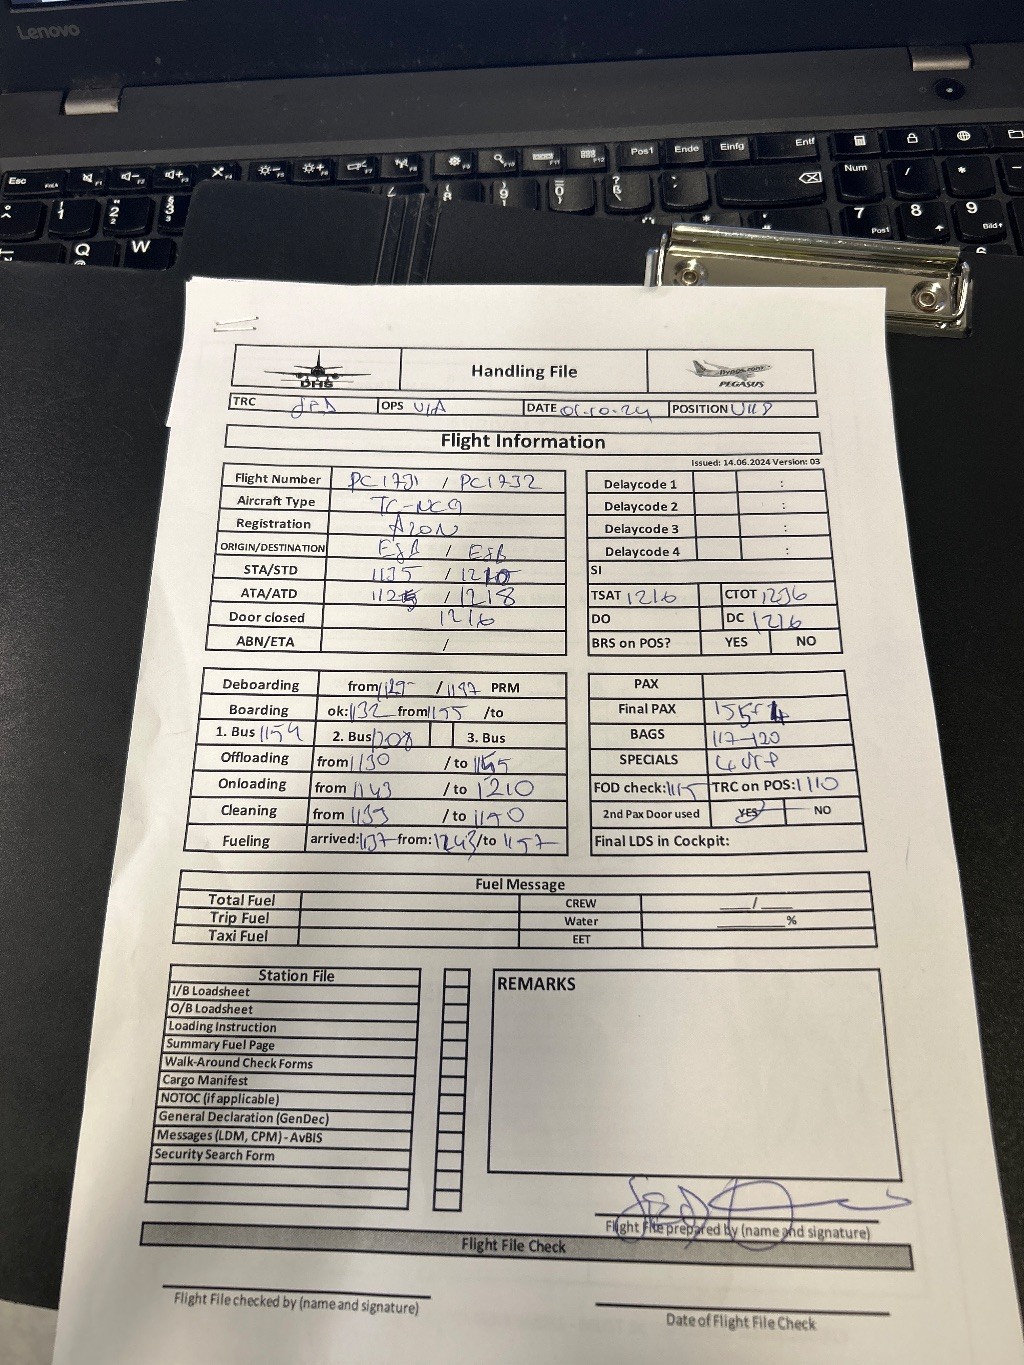 Lenovo
Esc
Pos1 Ende Einfg Entf
Num / *
7 8 9
Pos1 Bild
Q W
DHS
Handling File
flypgs.com
PEGASUS
TRC OPS DATE 01.10.24 POSITION
Flight Information
Issued: 14.06.2024 Version: 03
Flight Number PC1731 / PC1732
Aircraft Type TC-NCG
Registration A20N
ORIGIN/DESTINATION ESB / ESB
STA/STD 1135 / 1210
ATA/ATD / 1218
Door closed 1216
ABN/ETA /
Delaycode 1 :
Delaycode 2 :
Delaycode 3 :
Delaycode 4 :
SI
TSAT 1216 CTOT 1236
DO DC 1216
BRS on POS? YES NO
Deboarding from / PRM
Boarding ok: 1132 from 1155 /to
1. Bus 1154 2. Bus 1208 3. Bus
Offloading from 1130 /to
Onloading from 1143 /to 1210
Cleaning from /to 1140
Fueling arrived: 1137 from: /to 1157
PAX
Final PAX
BAGS 117-120
SPECIALS
FOD check: 1115 TRC on POS: 1110
2nd Pax Door used YES NO
Final LDS in Cockpit:
Fuel Message
Total Fuel CREW ____/____
Trip Fuel Water ________%
Taxi Fuel EET
Station File
I/B Loadsheet
O/B Loadsheet
Loading Instruction
Summary Fuel Page
Walk-Around Check Forms
Cargo Manifest
NOTOC (if applicable)
General Declaration (GenDec)
Messages (LDM, CPM) - AvBIS
Security Search Form
REMARKS
Flight File prepared by (name and signature)
Flight File Check
Flight File checked by (name and signature)
Date of Flight File Check